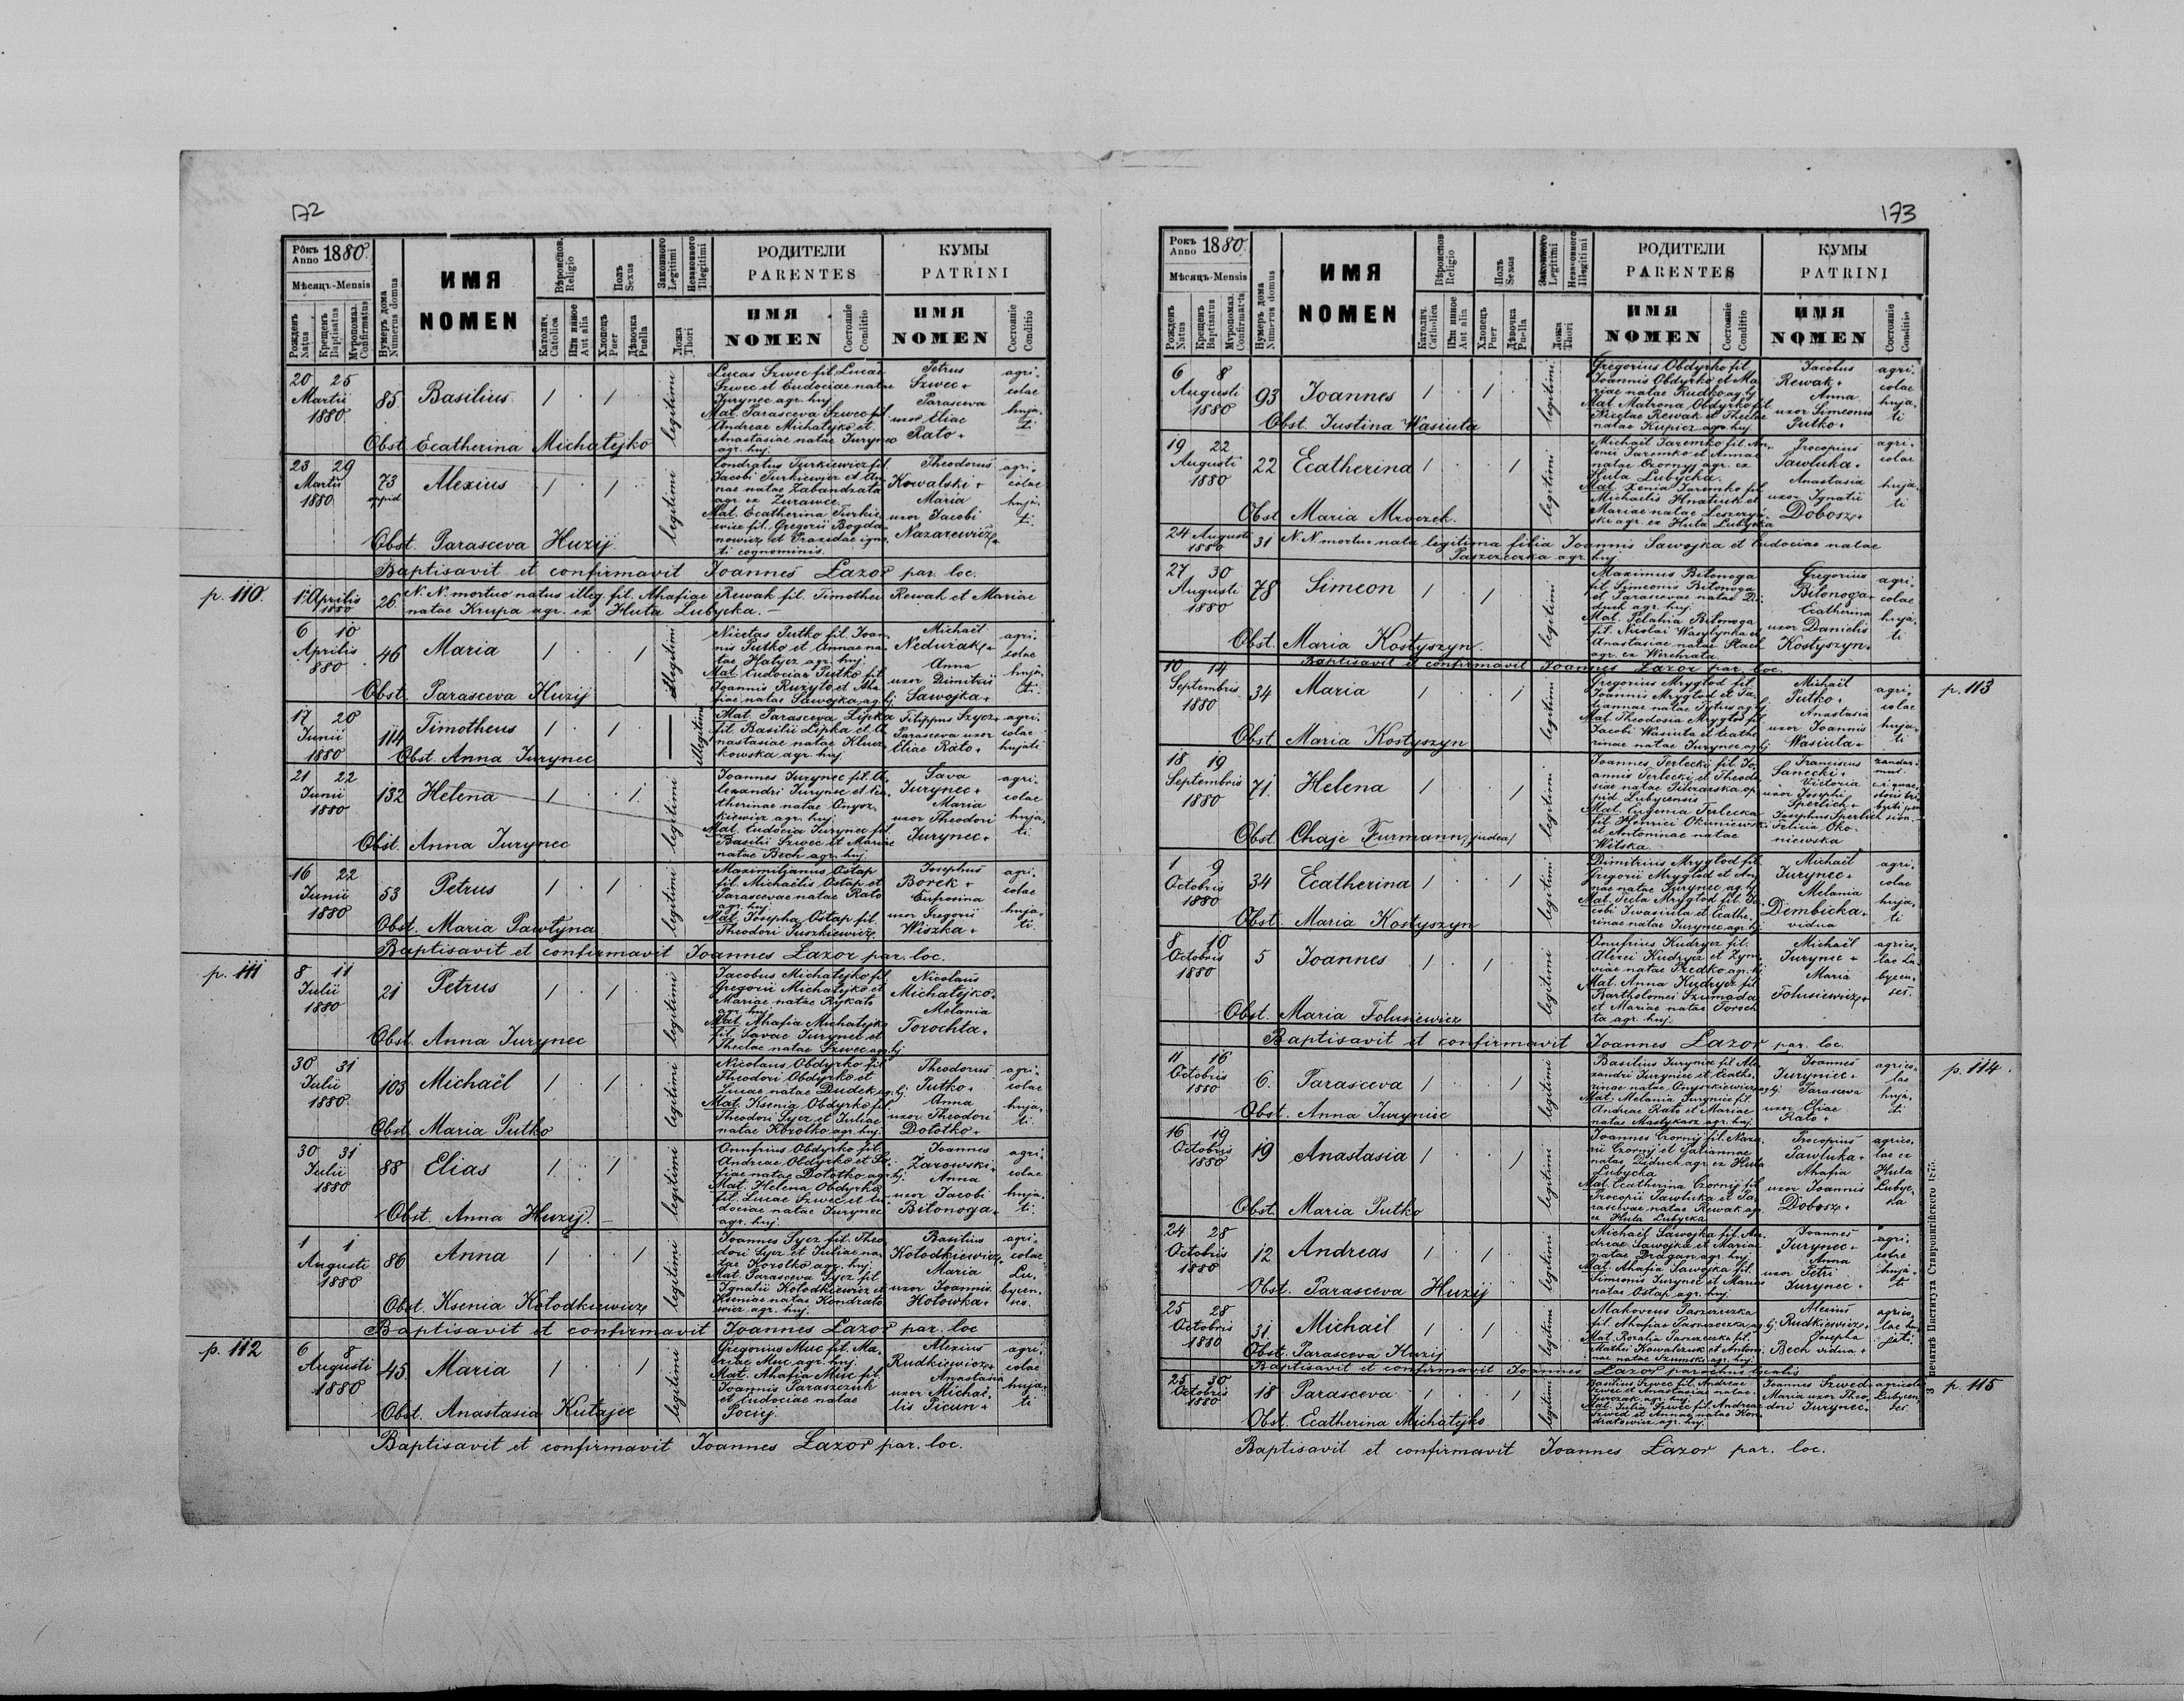 172
Рôкъ Anno 1880.
Мѣсяцъ-Mensis
Рожденъ Natus
Крещенъ Baptisatus
Муропомаз. Confirmatus
Нумеръ дома Numerus domus
ИМЯ
NOMEN
Вѣроиспов. Religio
Католич. Catolica
Или иное Aut alia
Полъ Sexus
Хлопецъ Puer
Дѣвочка Puella
Законного Legitimi
Незаконного Illegitimi
Ложа Thori
РОДИТЕЛИ
PARENTES
ИМЯ
NOMEN
Состояніе Conditio
КУМЫ
PATRINI
ИМЯ
NOMEN
Состояніе Conditio
20 25
Martii
1880
85
Basilius
1 . 1 .
legitimi
Lucas Szwec fil. Lucae
Szwec et Eudociae natae
Jurynec agr. huj.
Mat. Parasceva Szwec fil.
Andreae Michałejko et
Anastasiae natae Jurynec
agr. huj.
Petrus
Szwec +
Parasceva
uxor Eliae
Rato +
agri-
colae
huja-
ti
Obst. Ecatherina Michałejko
23 29
Martii
1880
73
Alexius
1 . 1 .
legitimi
Condratus Turkiewicz fil.
Jacobi Turkiewicz et An-
nae natae Zabandzata
agr. ex Zurawce
Mat. Ecatherina Turkie-
wicz fil. Gregorii Bogda-
nowicz et Praxidae igno-
ti cognominis.
Theodorus
Kowalski +
Maria
uxor Jacobi
Nazarewicz +
agri-
colae
huja-
ti
Obst. Parasceva Huzij
Baptisavit et confirmavit Joannes Łazor par. loc.
p. 110.
1 Aprilis
1880
26
N. N. mortuo natus illeg. fil. Ahafiae Rewak fil. Timothei Rewak et Mariae
natae Krupa agr. ex Huta Lubycka. —
6 10
Aprilis
880
46
Maria
1 . . 1
illegitimi
Nicetas Putko fil. Joan-
nis Putko et Annae na-
tae Hatycz agr. huj.
Mat. Eudocia Putko fil.
Joannis Ruzyło et Aha-
fiae natae Sawojka ag. hj.
Michaël
Nedwizak +
Anna
uxor Dimitrii
Sawojka +
agri-
colae
huja-
ti
Obst. Parasceva Huzij
17 20
Junii
1880
114
Timotheus
1 . 1 .
illegitimi
Mat. Parasceva Lipka
fil. Basilii Lipka et A-
nastasiae natae Klucz-
kowska agr. huj.
Filippus Szycz +
Parasceva uxor
Eliae Rato +
agri-
colae
hujati
Obst. Anna Jurynec
21 22
Junii
1880
132
Helena
1 . . 1
legitimi
Joannes Jurynec fil. A-
lexandri Jurynec et Eca-
therinae natae Onysz-
kiewicz agr. huj.
Mat. Eudocia Jurynec fil.
Basilii Szwec et Mariae
natae Bech agr. huj.
Sava
Jurynec +
Maria
uxor Theodori
Jurynec +
agri-
colae
huja-
ti
Obst. Anna Jurynec
16 22
Junii
1880
53
Petrus
1 . 1 .
legitimi
Maximilianus Ostap
fil. Michaëlis Ostap et
Parascevae natae Rato
agr. huj.
Mat. Josepha Ostap fil.
Theodori Juszkiewicz.
Josephus
Borek +
Eufrosina
uxor Gregorii
Wiszka +
agri-
colae
huja-
ti
Obst. Maria Pawłyna
Baptisavit et confirmavit Joannes Łazor par. loc.
p. 111
8 11
Julii
1880
21
Petrus
1 . 1 .
legitimi
Jacobus Michałejko fil.
Gregorii Michałejko et
Mariae natae Rykato
agr. huj.
Mat. Ahafia Michałejko
fil. Savae Jurynec et
Theclae natae Szwec agr. hj.
Nicolaus
Michałejko +
Melania
Torochta +
Obst. Anna Jurynec
30 31
Julii
1880
103
Michaël
1 . 1 .
legitimi
Nicolaus Obdyrko fil.
Theodori Obdyrko et
Luciae natae Dudek ag. hj.
Mat. Ksenia Obdyrko fil.
Theodori Sycz et Juliae
natae Korotko agr. huj.
Theodorus
Putko +
Anna
uxor Theodori
Dototko +
agri-
colae
huja-
ti
Obst. Maria Putko
30 31
Julii
1880
88
Elias
1 . 1
legitimi
Onufrius Obdyrko fil.
Andreae Obdyrko et So-
fiae natae Dototko agr. hj.
Mat. Helena Obdyrko
fil. Lucae Szwec et Eu-
dociae natae Jurynec
agr. huj.
Joannes
Zarowski +
Anna
uxor Jacobi
Biłonoga +
agri-
colae
huja-
ti
Obst. Anna Huzij. —
1 1
Augusti
1880
86
Anna
1 . . 1
legitimi
Joannes Sycz fil. Theo-
dori Sycz et Juliae na-
tae Korotko agr. huj.
Mat. Parasceva Sycz fil.
Ignatii Kołodkiewicz et
Kseniae natae Kondrato-
wicz agr. huj.
Basilius
Kołodkiewicz +
Maria
uxor Joannis
Hołowka +
agri-
colae
Lu-
bycen-
ses
Obst. Ksenia Kołodkiewicz
Baptisavit et confirmavit Joannes Łazor par. loc
p. 112
6 8
Augusti
1880
45.
Maria
1 . . 1
legitimi
Gregorius Muc fil. Ma-
triae Muc agr. huj.
Mat. Ahafia Muc fil.
Joannis Paraszczuk
et Eudociae natae
Pociej.
Alexius
Rudkiewicz +
Anastasia
uxor Michaë-
lis Picun +
agri-
colae
huja-
ti
Obst. Anastasia Kutajec
Baptisavit et confirmavit Joannes Łazor par. loc.
173
Рокъ Anno 1880.
Мѣсяцъ-Mensis
Рожденъ Natus
Крещенъ Baptisatus
Муропомаз. Confirmatis
Нумеръ дома Numerus domus
ИМЯ
NOMEN
Вѣроиспов Religio
Католич. Catholica
Или иное Aut alia
Полъ Sexus
Хлопецъ Puer
Дѣвочка Puella
Законного Legitimi
Незаконного Illegitimi
Ложа Thori
РОДИТЕЛИ
PARENTES
ИМЯ
NOMEN
Состояніе Conditio
КУМЫ
PATRINI
ИМЯ
NOMEN
Состояніе Conditio
6 8
Augusti
1880
93
Joannes
1 . 1 .
legitimi
Gregorius Obdyrko fil.
Joannis Obdyrko et Ma-
riae natae Rudko ag. hj.
Mat. Matrona Obdyrko fil.
Nicetae Rewak et Theclae
natae Kupicz agr. huj.
Jacobus
Rewak +
Anna
uxor Simeonis
Putko +
agri-
colae
huja-
ti
Obst. Justina Wasiuta
19 22
Augusti
1880
22
Ecatherina
1 . . 1
legitimi
Michaël Jaremko fil. An-
tonii Jaremko et Annae
natae Czornyj agr. ex
Huta Lubycka.
Mat. Xenia Jaremko fil.
Michaëlis Hnatiuk et
Mariae natae Leszczyń-
ski agr. ex Huta Lubycka
Procopius
Pawluka +
Anastasia
uxor Ignatii
Dobosz +
agri-
colae
huja-
ti
Obst. Maria Mroczek.
24 Augusti
1880
31
N. N mortue nata legitima filia Joannis Sawojka et Eudociae natae
Paszeczka agr. huj
27 30
Augusti
1880
78
Simeon
1 . 1 .
legitimi
Maximus Biłonoga
fil. Simeonis Biłonoga
et Parascevae natae Di-
duch agr. huj.
Mat. Pelahia Biłonoga
fil. Nicolai Wasyłynka et
Anastasiae natae Stach
agr. ex Werchrata
Gregorius
Biłonoga +
Ecatherina
uxor Danielis
Kostyszyn +
agri-
colae
huja-
ti
Obst. Maria Kostyszyn.
Baptisavit et confirmavit Joannes Łazor par. loc.
p. 113
10 14
Septembris
1880
34
Maria
1 . . 1
legitimi
Gregorius Mrygłod fil.
Joannis Mrygłod et Ta-
tiannae natae Tytus ag. hj.
Mat. Theodosia Mrygłod fil.
Jacobi Wasiuta et Ecathe-
rinae natae Jurynec ag. hj.
Michaël
Putko +
Anastasia
uxor Joannis
Wasiuta +
agri-
colae
huja-
ti
Obst. Maria Kostyszyn
18 19
Septembris
1880
71.
Helena
1 . . 1
legitimi
Joannes Terlecki fil. Jo-
annis Terlecki et Theodo-
siae natae Pilczarska op-
pid. Lubycensis
Mat. Eugenia Terlecka
fil. Henrici Okuniewski
et Antoninae natae
Witska.
Franciscus
Sanecki +
Victoria
uxor Josephi
Sperlich +
Josephus Sperlich
Felicia Oko-
niewska
Obst. Chaje Furmann /judea/
1 9
Octobris
1880
34
Ecatherina
1 . . 1
legitimi
Dimitrius Mrygłod fil.
Gregorii Mrygłod et An-
nae natae Jurynec ag. hj.
Mat. Tecla Mrygłod fil. Ja-
cobi Iwasiuta et Ecathe-
rinae natae Jurynec ag. hj.
Michaël
Jurynec +
Melania
Dembicka +
vidua
agri-
colae
huja-
ti
Obst. Maria Kostyszyn
8 10
Octobris
1880
5
Joannes
1 . 1 .
legitimi
Onufrius Kudrycz fil.
Alexei Kudrycz et Zyno-
viae natae Predko agr. hj.
Mat. Anna Kudrycz fil.
Bartholomei Szumada
et Mariae natae Toroch-
ta agr. huj.
Michaël
Jurynec +
Maria
Folusiewicz +
agrico-
lae Lu-
bycen-
ses.
Obst. Maria Folusiewicz
Baptisavit et confirmavit Joannes Łazor par. loc.
p. 114.
11 16
Octobris
1880
6.
Parasceva
1 . . 1
legitimi
Basilius Juryniec fil. Ale-
xandri Juryniec et Ecathe-
rinae natae Onyszkiewicz ag. hj.
Mat. Melania Juryniec fil.
Andreae Rato et Mariae
natae Mastykasz agr. huj.
Joannes
Juryniec +
Parasceva
uxor Eliae
Rato +
agrico-
lae
huja-
ti
Obst. Anna Juryniec
16 19
Octobris
1880
19
Anastasia
1 . . 1
legitimi
Joannes Czornij fil. Naza-
rii Czornij et Galiannae
natae Diduch agr. ex Huta
Lubycka
Mat. Ecatherina Czornij fil.
Procopii Pawluka et Pa-
rascevae natae Rewak agr.
ex Huta Lubycka
Procopius
Pawluka +
Ahafia
uxor Joannis
Dobosz +
agrico-
lae ex
Huta
Lubyc-
ka
Obst. Maria Putko
24 28
Octobris
1880
12
Andreas
1 . 1 .
legitimi
Michaël Sawojka fil. An-
dreae Sawojka et Mariae
natae Dragan agr. huj.
Mat. Ahafia Sawojka fil.
Simeonis Jurynec et Mariae
natae Ostap agr. huj.
Joannes
Jurynec +
Anna
uxor Petri
Jurynec +
agri-
colae
huja-
ti
Obst. Parasceva Huzij
25 28
Octobris
1880
31.
Michaël
1 . 1 .
legitimi
Makoveus Paszeczka
fil. Ahafiae Paszeczka ag. hj.
Mat. Rozalia Paszeczka fil.
Mathei Kowalczuk et Antoni-
nae natae Szumski agr. huj.
Alexius
Rudkiewicz +
Josepha
Bech vidua +
agrico-
lae hu-
jati.
Obst. Parasceva Huzij
Baptisavit et confirmavit Joannes Łazor parochus localis
p. 115
25 30
Octobris
1880
18
Parasceva
1 . . 1
legitimi
Basilius Szwec fil. Andreae
Szwec et Anastasiae natae
Jurczak agr. huj.
Mat. Julia Szwec fil. Andreae
Szwed et Annae natae Kon-
dratowicz agr. huj.
Joannes Szwed +
Maria uxor Theo-
dori Jurynec +
agricolae
Lubycen-
ses
Obst. Ecatherina Michałejko
Baptisavit et confirmavit Joannes Łazor par. loc.
З печатнѣ Института Ставропигійского